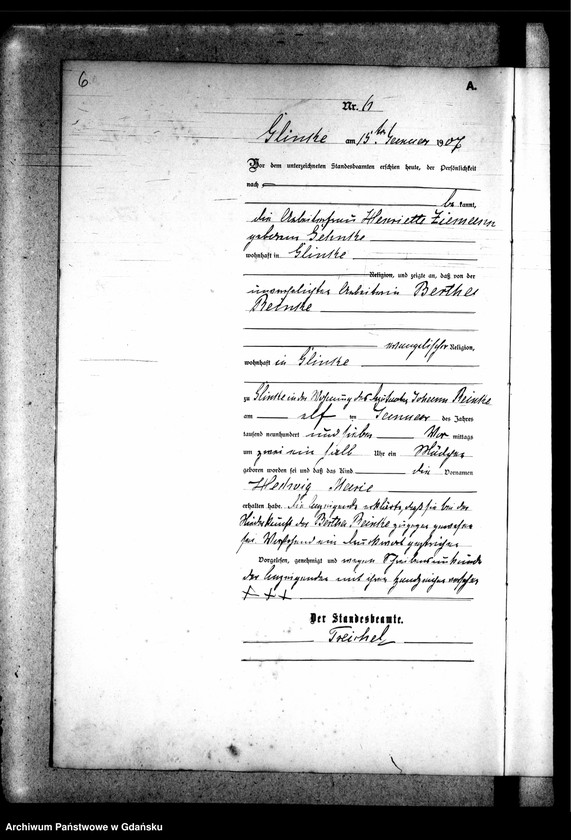 6
A.
Nr. 6
Glinke am 15ten Januar 1907
Vor dem unterzeichneten Standesbeamten erschien heute, der Persönlichkeit
nach
be kannt,
die Arbeiterfrau Henriette Ziemann
geborene Gehnke
wohnhaft in Glinke
Religion, und zeigte an, daß von der
unverehelichten Arbeiterin Bertha
Reinke
evangelischer Religion,
wohnhaft in Glinke
zu Glinke in der Wohnung des Johann Reinke
am elf ten Januar des Jahres
tausend neunhundert und sieben Vor mittags
um zwei ein halb Uhr ein Mädchen
geboren worden sei und daß das Kind die Vornamen
Hedwig Marie
erhalten habe. Die Anzeigende erklärte, daß sie bei der
Niederkunft der Bertha Reinke zugegen gewesen
sei. Vorstehend ein Druckwort gestrichen
Vorgelesen, genehmigt und wegen Schreibensunkunde
der Anzeigenden mit ihrem Handzeichen versehen
+ + +
Der Standesbeamte.
Treichel
Archiwum Państwowe w Gdańsku